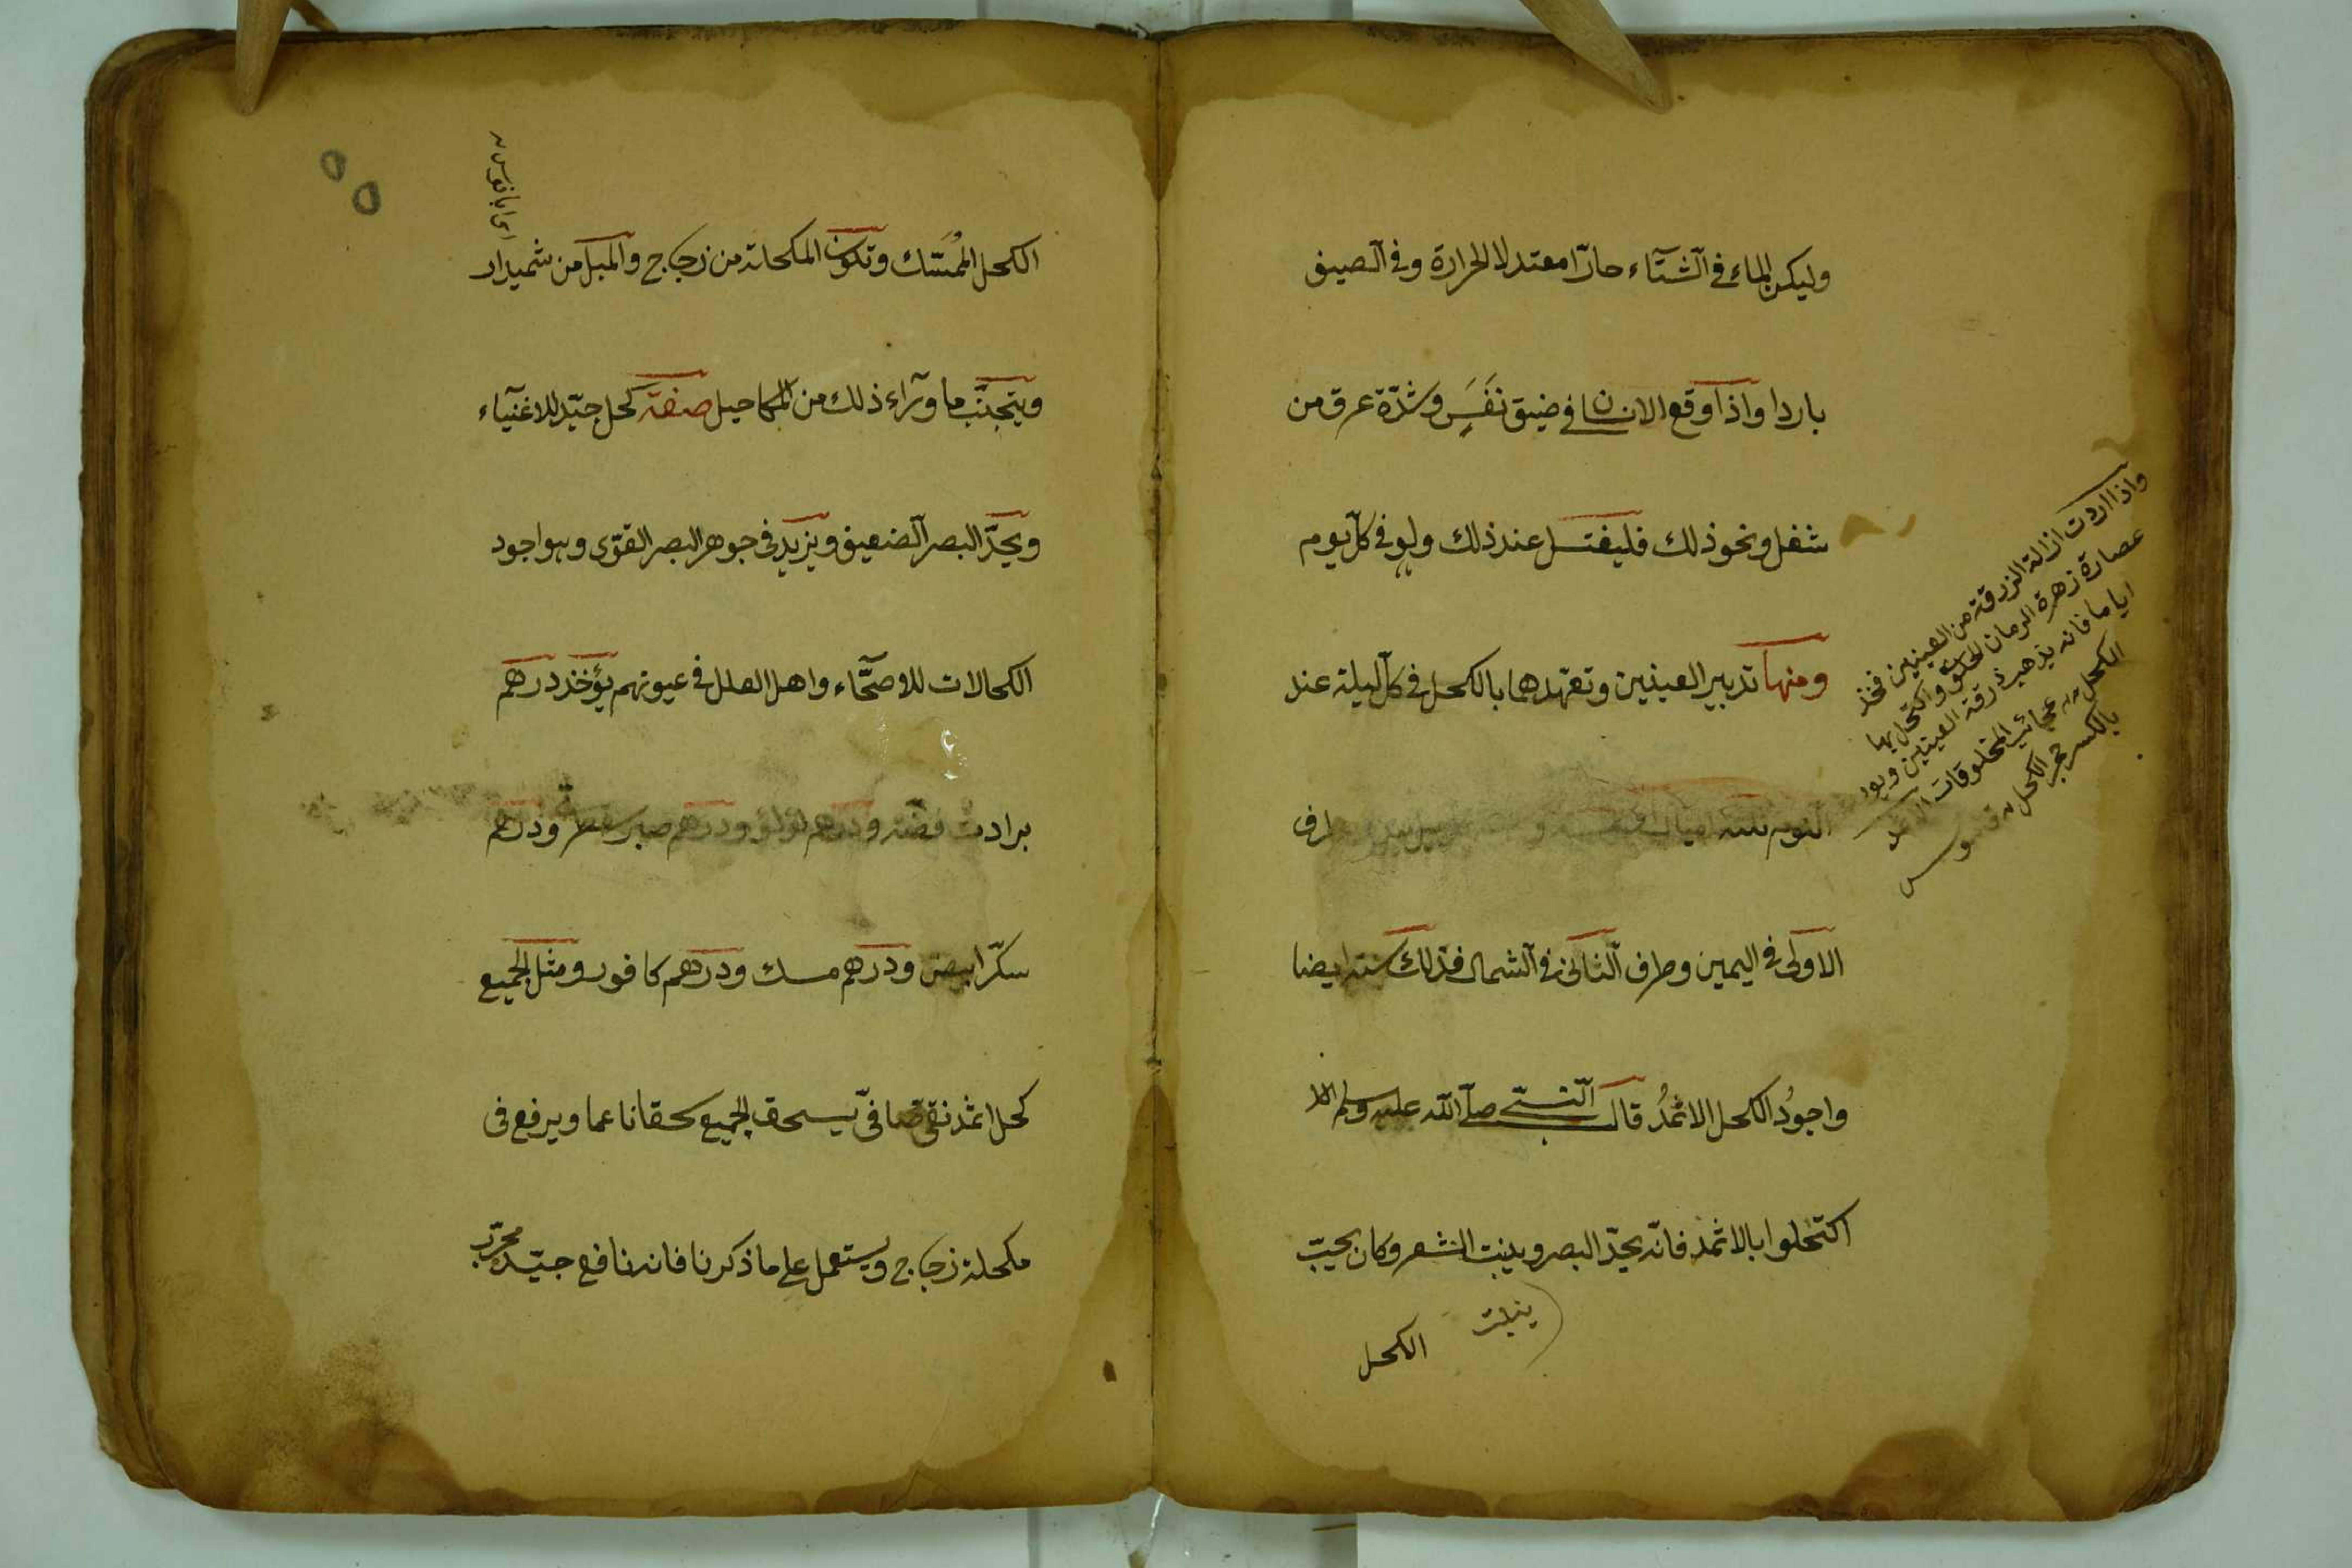 وليكن الماء في الشتاء حارّا معتدلا لحرارة وفي الصيف
باردا واذا وقع الانسان في ضيق نَفَسٍ وشدّة عرق من
شغل ونحو ذلك فليغتسل عند ذلك ولو في كلّ يوم
ومنها تدبير العينين وتعهدهما بالكحل في كلّ ليلة عند
النوم
الاولى في اليمين وطرف الثاني في الشمال فذلك سنة ايضا
واجودُ الكحل الاثمدُ قال النبيّ صلى الله عليه وسلم الا
اكتحلوا بالاثمد فانّه يحدّ البصر وينبت الشعر وكان يحبّ
ينبت
الكحل
واذا اردت ازالة الزرقة من العينين فخذ
عصارة زهرة الرمان الحلو واكتحل بها
اياما فانه يذهب زرقة العينين
الكحل عجائب المخلوقات
بالكسر حجر الكحل
الكحل المُمَسَّك وتكون المكحلة من زجاج والميل من
ويتجنّب ما وراء ذلك من المكاحيل صفة كحل جيّد للاغنياء
ويحدّ البصر الضعيف ويزيد في جوهر البصر القوّى وهو اجود
الكحالات للاصحّاء واهل العلل في عيونهم يؤخذ درهم
برادت فضّة ودرهم لؤلؤ ودرهم صبر ودرهم
سكّر ابيض ودرهم مسك ودرهم كافور ومثل الجميع
كحل اثمد نقى صافىّ يسحق الجميع سحقا ناعما ويرفع فى
مكحلة زجاج ويستعمل على ما ذكرنا فانه نافع جيّد مجرّب